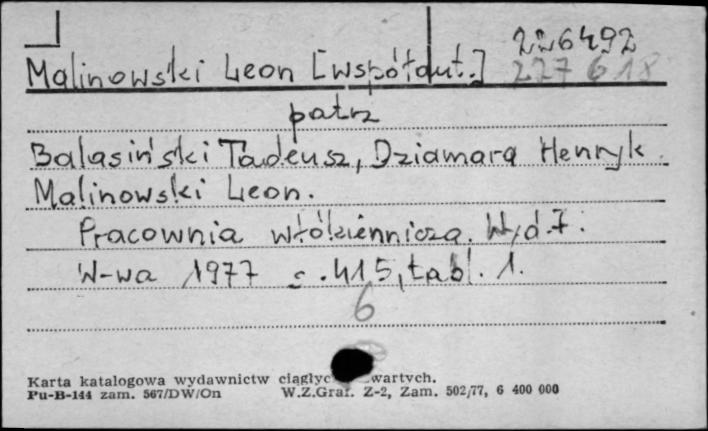 226492
Malinowski Leon [współaut.] 227618
patrz
Balasiński Tadeusz, Dziamara Henryk.
Malinowski Leon.
Pracownia włókiennicza. Wyd. 7.
W-wa 1977 s. 415, tabl. 1.
6
Karta katalogowa wydawnictw ciągłyc wartych.
Pu-B-144 zam. 567/DW/On W.Z.Graf. Z-2, Zam. 502/77, 6 400 000